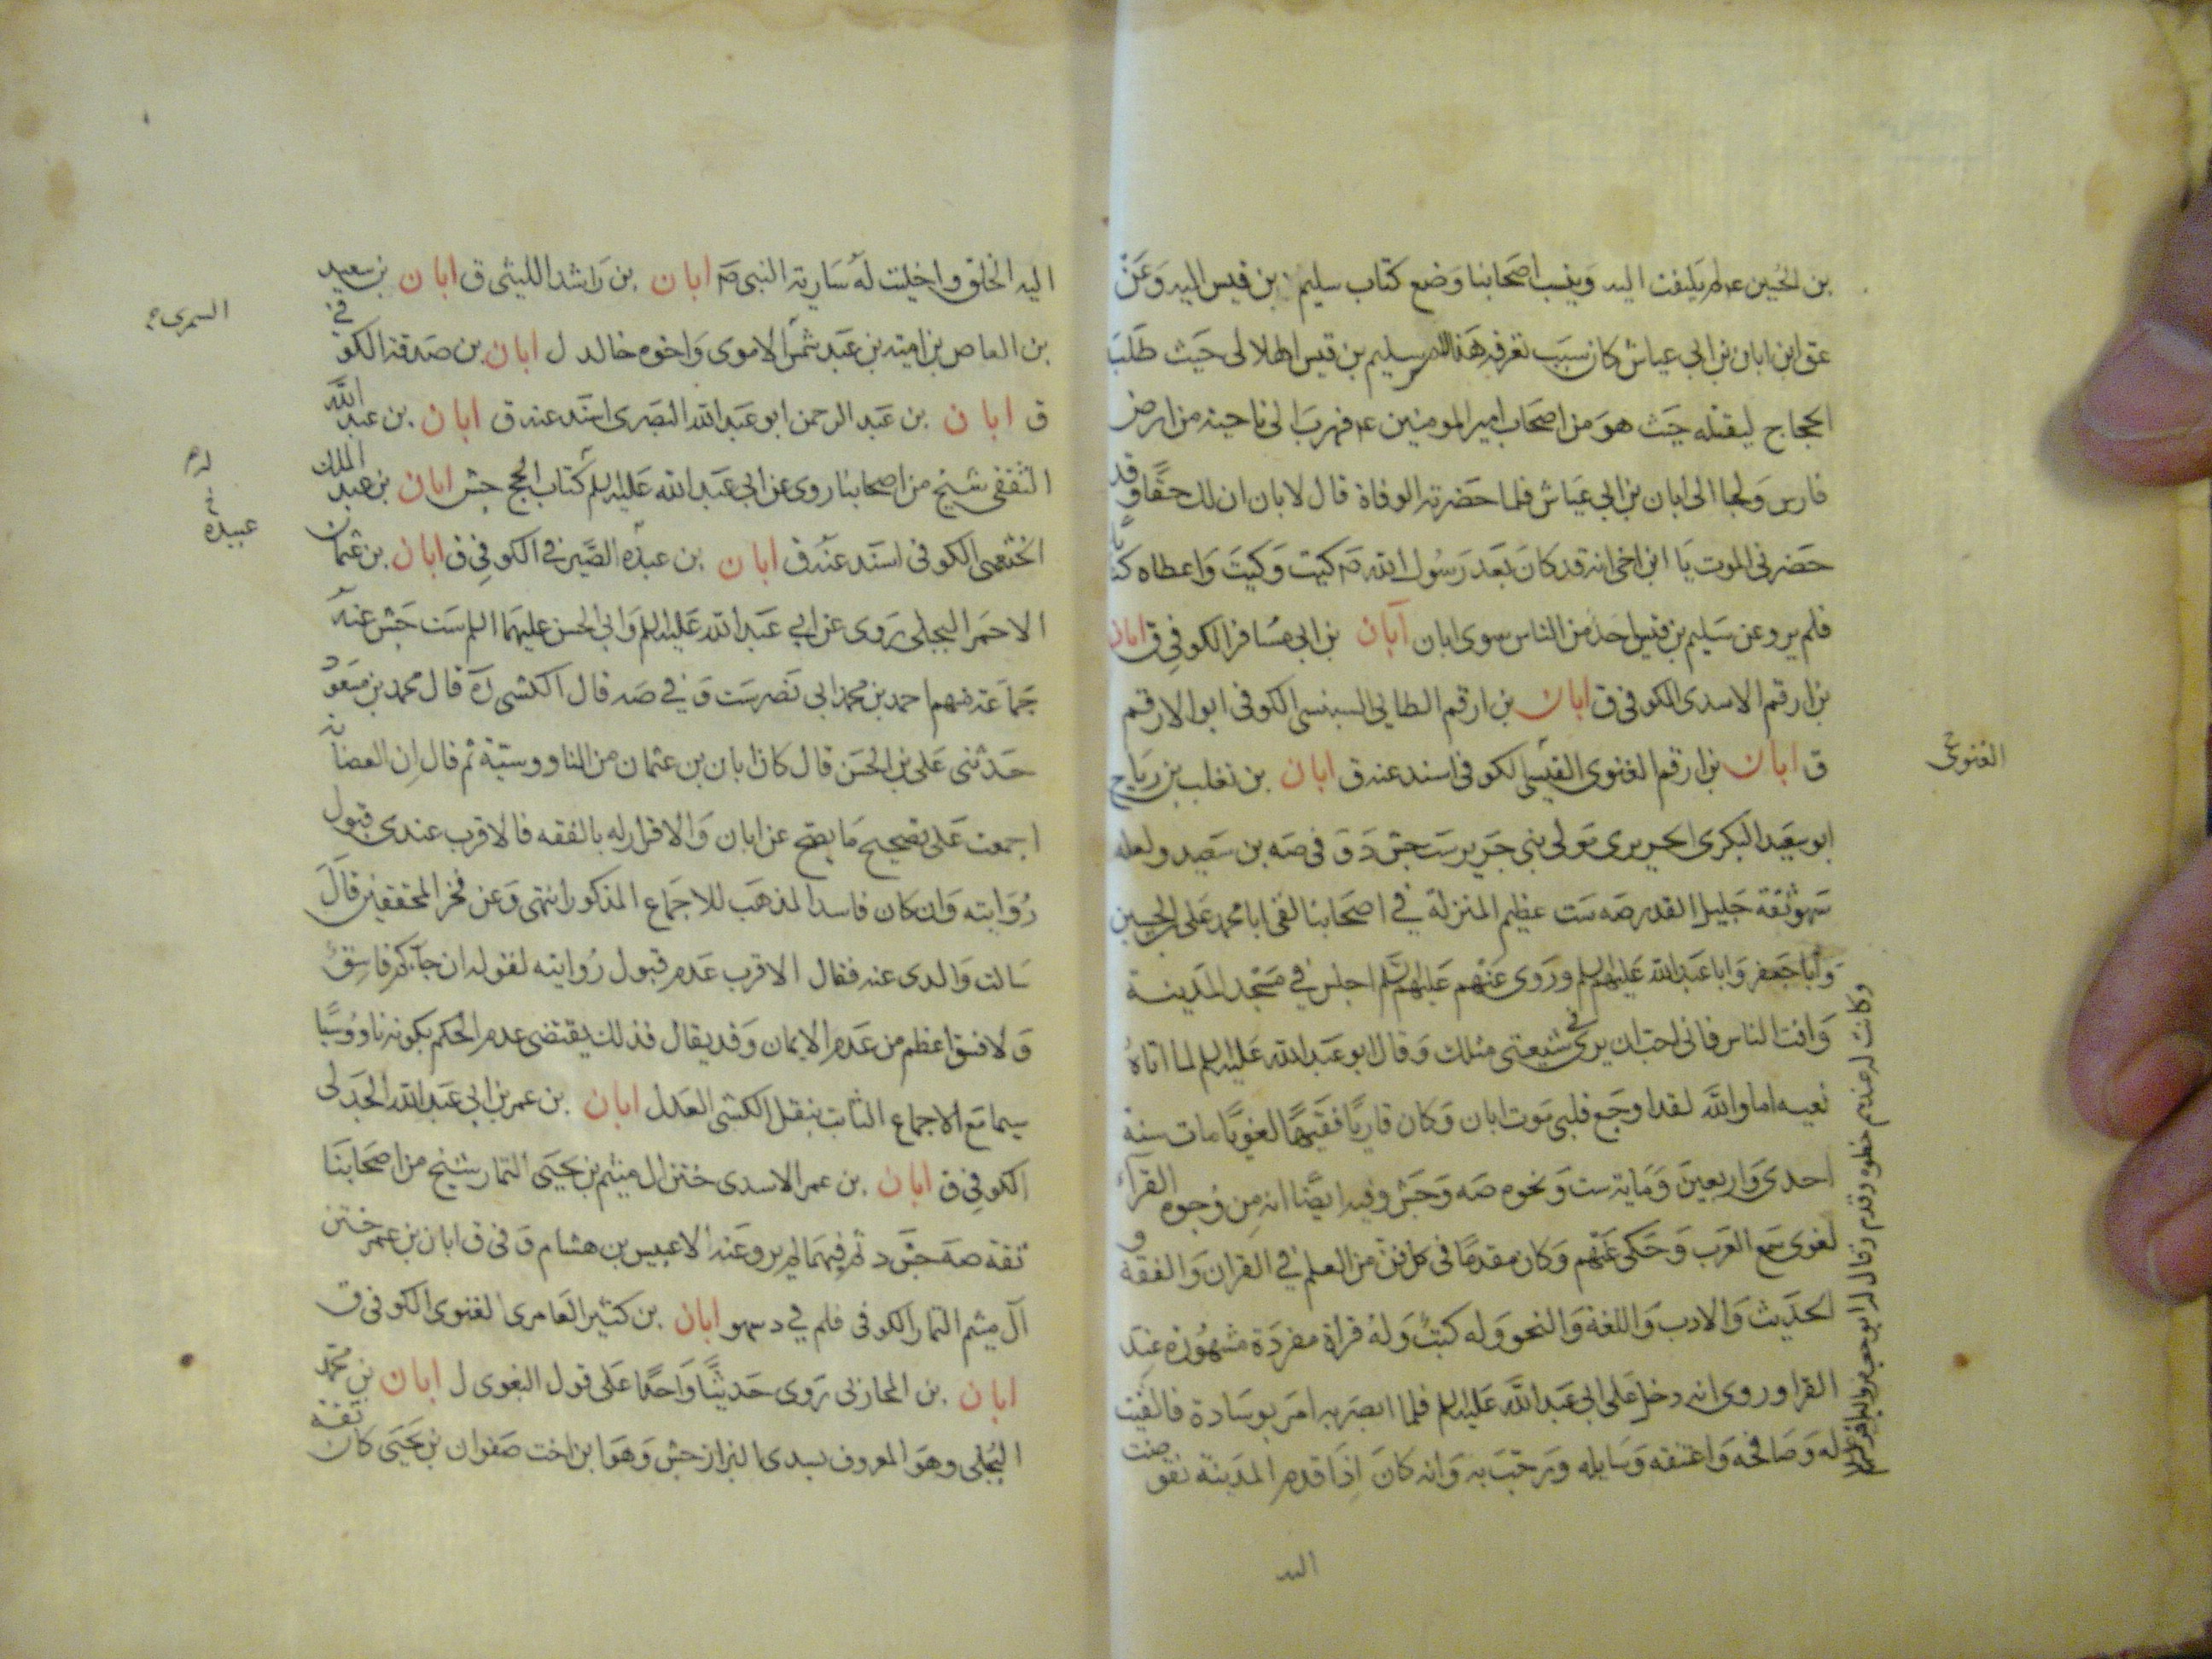 بن الحسين ع لم يلتفت اليه وينسب اصحابنا وضع كتاب سليم بن قيس اليه وعن
عق ابن ابان بن ابي عياش كان سبب تعرفه هذا الامر سليم بن قيس الهلالي حيث طلبه
الحجاج ليقتله حيث هو من اصحاب امير المومنين ع فهرب الى ناحية من ارض
فارس ولجا الى ابان بن ابي عياش فلما حضرته الوفاة قال لابان ان لك حقا وقد
حضرني الموت يا ابن اخي انه قد كان بعد رسول الله ص كيت وكيت واعطاه كتابا
فلم يرو عن سليم بن قيس احد من الناس سوى ابان ابان بن ابي مسافر الكوفي ق ابان
بن ارقم الاسدي الكوفي ق ابان بن ارقم الطايي السنبسي الكوفي ابو الارقم
ق ابان بن ارقم الغنوي القيسي الكوفي اسند عنه ق ابان بن تغلب بن رياح
الغنوي ح
ابو سعيد البكري الجريري مولى بني جرير ست جش د ق في صه بن سعيد ولعله
سهو ثقة جليل القدر صه ست عظيم المنزلة في اصحابنا لقي ابا محمد علي بن الحسين
وابا جعفر وابا عبد الله عليهم السلم وروى عنهم عليهم السلم اجلس في مسجد المدينة
وافت الناس فاني احب ان يرى في شيعتي مثلك وقال ابو عبد الله عليه السلم لما اتاه
نعيه اما والله لقد اوجع قلبي موت ابان وكان قاريا فقيها لغويا مات سنة
احدى واربعين ومايه ست ونحوه صه وجش وفيه ايضا انه من وجوه القراء
لغوي سمع العرب وحكى عنهم وكان مقدما في كل فن من العلم في القران والفقه و
الحديث والادب واللغة والنحو وله كتب وله قراة مفردة مشهورة عند
القرا وروي انه دخل على ابي عبد الله عليه السلم فلما ابصر به امر بوسادة فالقيت
له وصافحه واعتنقه وسايله ورحب به وانه كان اذا قدم المدينة تقوضت
وكانت له عندهم حظوه وقدم وقال له ابو جعفر الباقر عليه السلم
اليه
اليه الخلق واخليت له سارية النبي ص ابان بن راشد الليثي ق ابان بن سعيد
بن العاص بن امية بن عبد شمس الاموي واخوه خالد ل ابان بن صدقة الكوفي
السمري
ق ابان بن عبد الرحمن ابو عبد الله البصري اسند عنه ق ابان بن عبد الله
الثقفي شيخ من اصحابنا روى عن ابي عبد الله عليه السلم كتاب الحج جش ابان بن عبد الملك
الخثعمي الكوفي اسند عنه ق ابان بن عبده الصيرفي الكوفي ق ابان بن عثمان
عبيدة
الاحمر البجلي روى عن ابي عبد الله عليه السلم وابي الحسن عليهما السلم ست جش عنه
جماعة منهم احمد بن محمد ابي نصر ست وفي صه قال الكشي ره قال محمد بن مسعود
حدثني علي بن الحسن قال كان ابان بن عثمان من الناووسية ثم قال ان العصابة
اجمعت على تصحيح ما يصح عن ابان والاقرار له بالفقه فالاقرب عندي قبول
روايته وان كان فاسد المذهب للاجماع المذكور انتهى وعن فخر المحققين قال
سالت والدي عنه فقال الاقرب عدم قبول روايته لقوله ان جآءكم فاسق
ولا فسق اعظم من عدم الايمان وقد يقال فذلك يقتضي عدم الحكم بكونه ناووسيا
سيما مع الاجماع الثابت بنقل الكشي العدل ابان بن عمر بن ابي عبد الله الجدلي
الكوفي ق ابان بن عمر الاسدي ختن ال ميثم بن يحيى التمار شيخ من اصحابنا
ثقة صه جش د لم فيهما لم يرو عنه الا عبيس بن هشام وفي ق ابان بن عمر ختن
آل ميثم التمار الكوفي فلم في د سهو ابان بن كثير العامري الغنوي الكوفي ق
ابان بن المحاربي روى حديثا واحدا على قول البغوي ل ابان بن محمد
البجلي وهو المعروف بسندي البزاز جش وهو ابن اخت صفوان بن يحيى كان ثقة